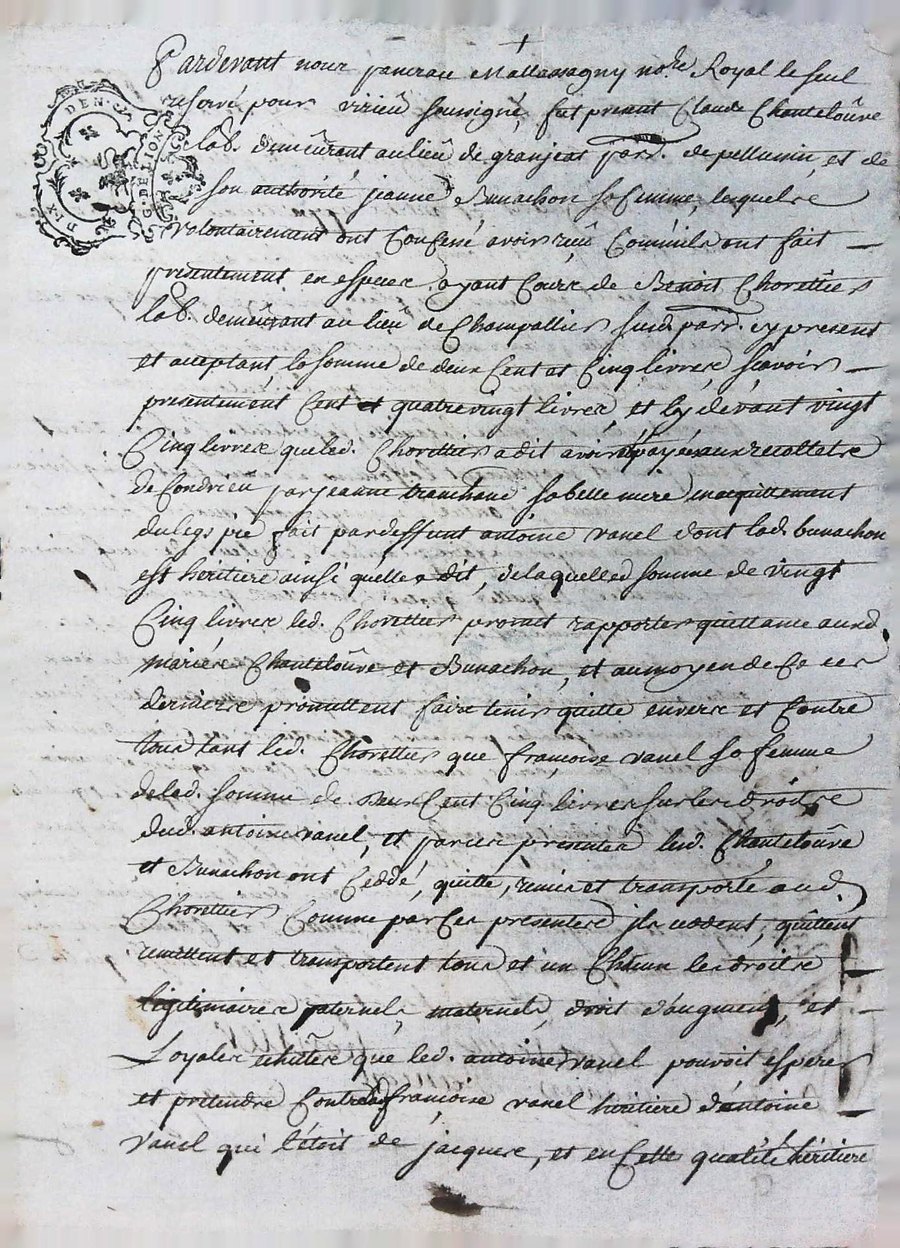 Pardevant nous pancrau Mallassagny no.re Royal le seul
reservé pour virieû soussigné, fut present Claude Chanteloûve
lab. demeûrant au lieû de granjeat parr. de pellussin, et de
son authorité jeanne Bunachon sa femme, lesquels
volontairement ont Confessé avoir reçû Comm'ils ont fait
presentement en especes ayant Cours de Benoit Chorettier
lab. demeûrant au lieû de Champallier susd. parr. cy present
et aceptant la somme de deux Cent et Cinq livres, scavoir
presentement Cent et quatre vingt livres, et cy devant vingt
Cinq livres que led. Chorettier a dit avoir payé aux recollets
de Condrieu par jeanne tranchand sa belle mere en acquittement
du legs pie fait par deffunt antoine vanel dont lad. bunachon
est heritiere ainsi qu'elle a dit, de laquelle d. somme de vingt
Cinq livres led. Chorettier promet rapporter quittance aux d.
mariés Chanteloûve et Bunachon, et au moyen de Ce ces
derniers promettent faire tenir quitte envers et Contre
tous tant led. Chorettier que françoise vanel sa femme
de lad. somme de Deux Cent Cinq livres sur les droits
dud. antoine vanel, et par ces presentes lesd. Chanteloûve
et Bunachon ont Ceddé, quitté, remis et transporté aud.
Chorettier Comme par Ces presentes ils ceddent, quittent
remettent et transportent tous et un Chacun les droits
legitimaires paternels, maternels, droit d'augment, et
Loyales echûtes que led. antoine vanel pouvoit esperer
et pretendre Contre lad. françoise vanel heritiere d'antoine
vanel qui l'étoit de jacques, et en Cette qualité heritiere
DIX DEN.
G. DE LION